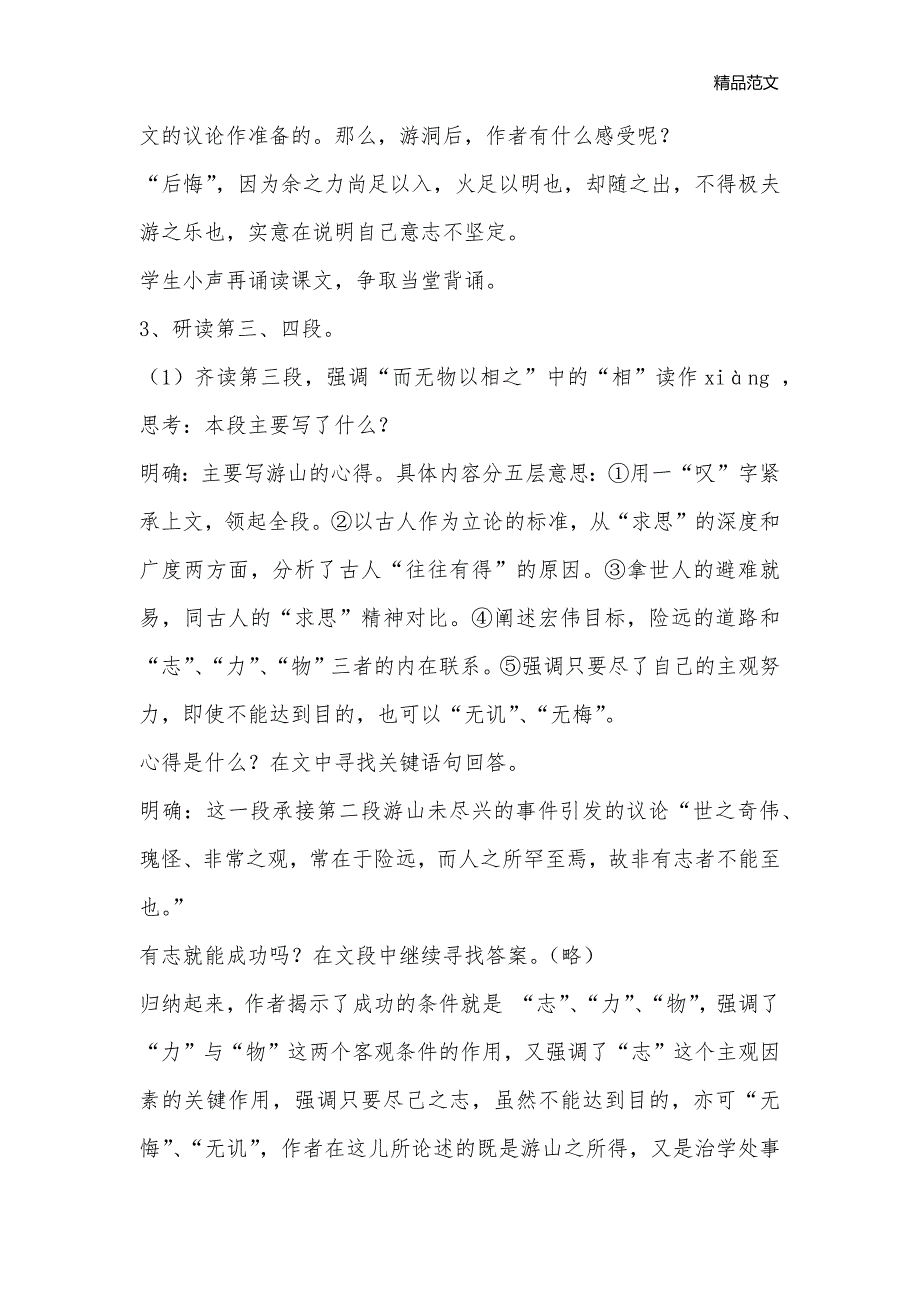 精品范文
文的议论作准备的。那么，游洞后，作者有什么感受呢？
“后悔”，因为余之力尚足以入，火足以明也，却随之出，不得极夫
游之乐也，实意在说明自己意志不坚定。
学生小声再诵读课文，争取当堂背诵。
3、研读第三、四段。
（1）齐读第三段，强调“而无物以相之”中的“相”读作 xiàng ，
思考：本段主要写了什么？
明确：主要写游山的心得。具体内容分五层意思：①用一“叹”字紧
承上文，领起全段。②以古人作为立论的标准，从“求思”的深度和
广度两方面，分析了古人“往往有得”的原因。③拿世人的避难就
易，同古人的“求思”精神对比。④阐述宏伟目标，险远的道路和
“志”、“力”、“物”三者的内在联系。⑤强调只要尽了自己的主观努
力，即使不能达到目的，也可以“无讥”、“无梅”。
心得是什么？在文中寻找关键语句回答。
明确：这一段承接第二段游山未尽兴的事件引发的议论“世之奇伟、
瑰怪、非常之观，常在于险远，而人之所罕至焉，故非有志者不能至
也。”
有志就能成功吗？在文段中继续寻找答案。（略）
归纳起来，作者揭示了成功的条件就是 “志”、“力”、“物”，强调了
“力”与“物”这两个客观条件的作用，又强调了“志”这个主观因
素的关键作用，强调只要尽己之志，虽然不能达到目的，亦可“无
悔”、“无讥”，作者在这儿所论述的既是游山之所得，又是治学处事